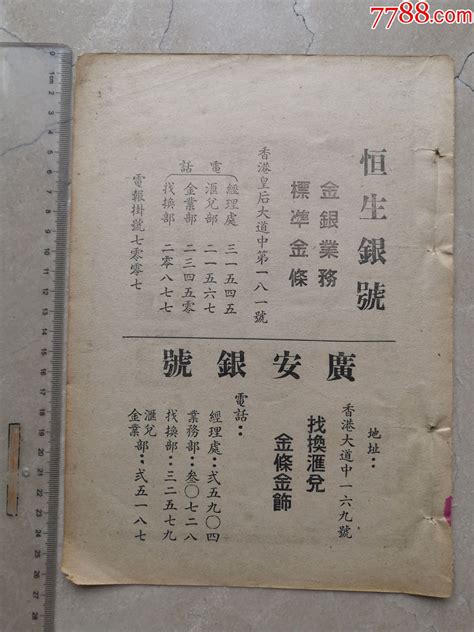 7788.com
恒生銀號
金銀業務
標準金條
香港皇后大道中第一八一號
電話
經理處 三一五四五
滙兌部 二一五六七
金業部 二三四五零
找換部 二零八七七
電報掛號七零零七
廣安銀號
地址：
香港大道中一六九號
找換滙兌
金條金飾
電話：
經理處：弍五九〇四
業務部：叁〇七二八
找換部：三二五七九
滙兌
金業部：弍五一八七